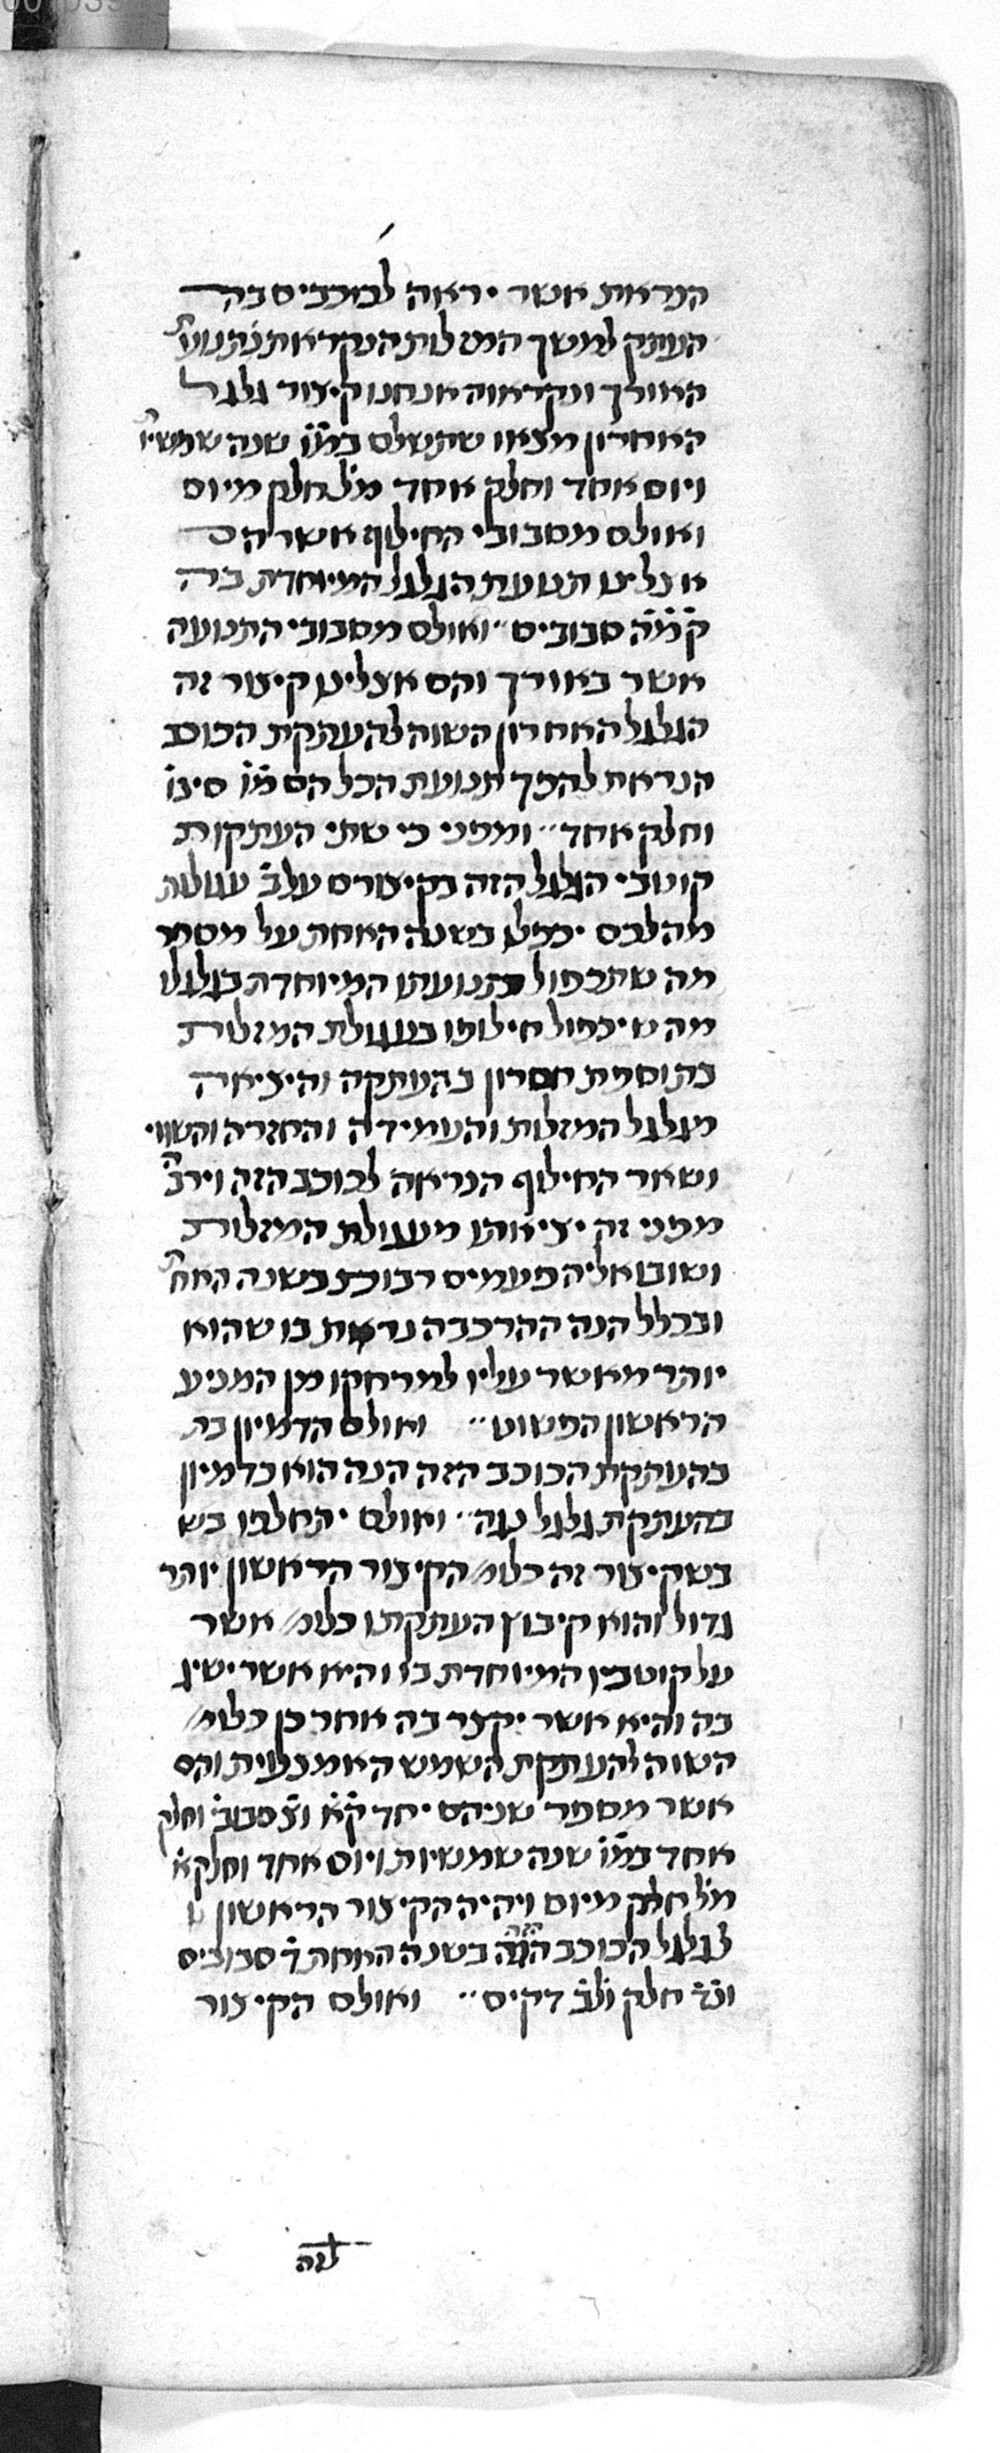 הנראת אשר יראה לכוכבים בה
העתק למשך המזלות הנקראת תנועת
האורך ונקראוה אנחנו קיצור גלגל
האחרון מצאו שתשלם במ̇ו̇ שנה שמשיו'
ויום אחד וחלק אחד מל̇ חלק מיום
ואולם מסבובי החילוף אשר הם
אצלינו תנועת הגלגל המיוחדת בה
ק̇מ̇ה̇ סבובים ואולם מסבובי התנועה
אשר באורך והם אצלינו קיצור זה
הגלגל האחרון השוה להעתקת הכוכב
הנראת להפך תנועת הכל הם מ̇ו̇ סיבו'
וחלק אחד ומפני כי שתי העתקות
קוטבי הגלגל הזה בקיצורם על ב̇ עגולות
מהלכם יכפלו בשנה האחת על מספר
מה שתכפול בתנועתו המיוחדת בגלגלו
מה שיכפול חילופו בעגולת המזלות
בתוספת חסרון בהעתקה והיציאה
מגלגל המזלות והעמידה והחזרה והשווי
ושאר החילוף הנראה לכוכב הזה וירבה
מפני זה יציאתו מעגולת המזלות
ושובו אליה פעמים רבות בשנה האחת
ובכלל הנה ההרכבה נראת בו שהוא
יותר מאשר עליו למרחקו מן המניע
הראשון הפשוט ואולם הדמיון בת
בהעתקת הכוכב הזה הנה הוא כדמיון
בהעתקת גלגל נגה ואולם יתחלפו בש
בשקיצור זה כלומ' הקיצור הראשון יותר
גדול והוא קיבוץ העתקתו כלומ' אשר
על קוטבין המיוחדת בו והיא אשר ישיג
בה והיא אשר יקצר בה אחר כן כלומ'
השוה להעתקת השמש האמצעית והם
אשר מספר שניהם יחד ק̇צ̇א̇ סבוב' וחלק
אחד במ̇ו̇ שנה שמשיות ויום אחד וחלק א̇
מל̇ חלק מיום ויהיה הקיצור הראשון
לגלגל הכוכב הזה בשנה האחת ד̇ סבובים
ונ̇ד̇ חלק ול̇ב̇ דקים ואולם הקיצור
לזה